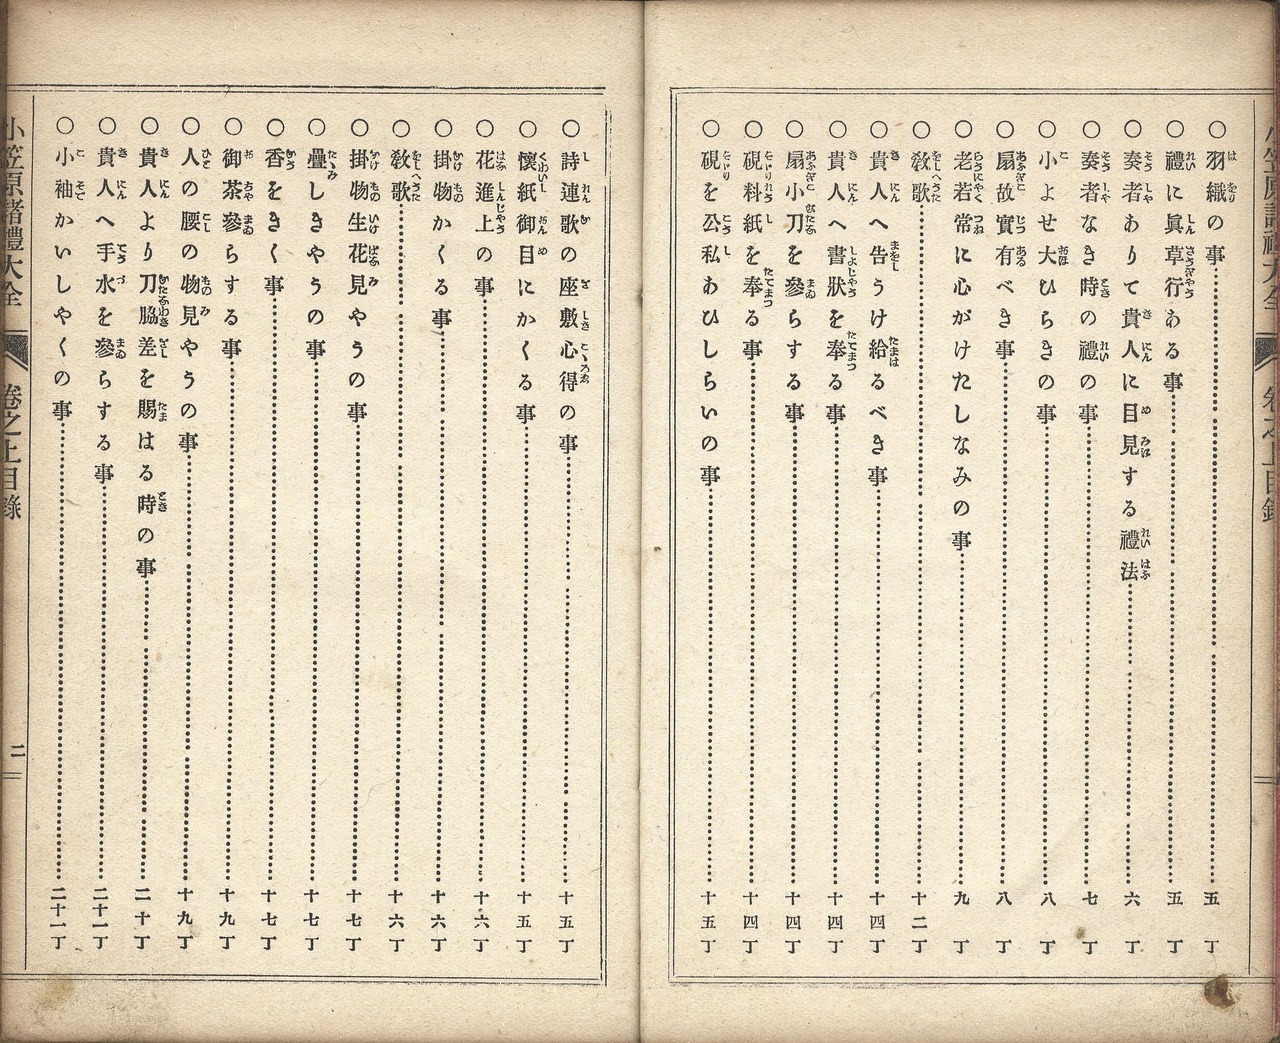 小笠原諸禮大全 卷之上目錄
○羽織の事 五丁
○禮に眞草行ある事 五丁
○奏者ありて貴人に目見する禮法 六丁
○奏者なき時の禮の事 七丁
○小よせ大ひらきの事 八丁
○扇故實有べき事 八丁
○老若常に心がけたしなみの事 九丁
○敎歌 十二丁
○貴人へ告うけ給るべき事 十四丁
○貴人へ書狀を奉る事 十四丁
○扇小刀を參らする事 十四丁
○硯料紙を奉る事 十四丁
○硯を公私あひしらいの事 十五丁
○詩連歌の座敷心得の事 十五丁
○懷紙御目にかくる事 十五丁
○花進上の事 十六丁
○掛物かくる事 十六丁
○敎歌 十六丁
○掛物生花見やうの事 十七丁
○疊しきやうの事 十七丁
○香をきく事 十七丁
○御茶參らする事 十九丁
○人の腰の物見やうの事 十九丁
○貴人より刀脇差を賜はる時の事 二十丁
○貴人へ手水を參らする事 二十一丁
○小袖かいしやくの事 二十一丁
小笠原諸禮大全 卷之上目錄 二